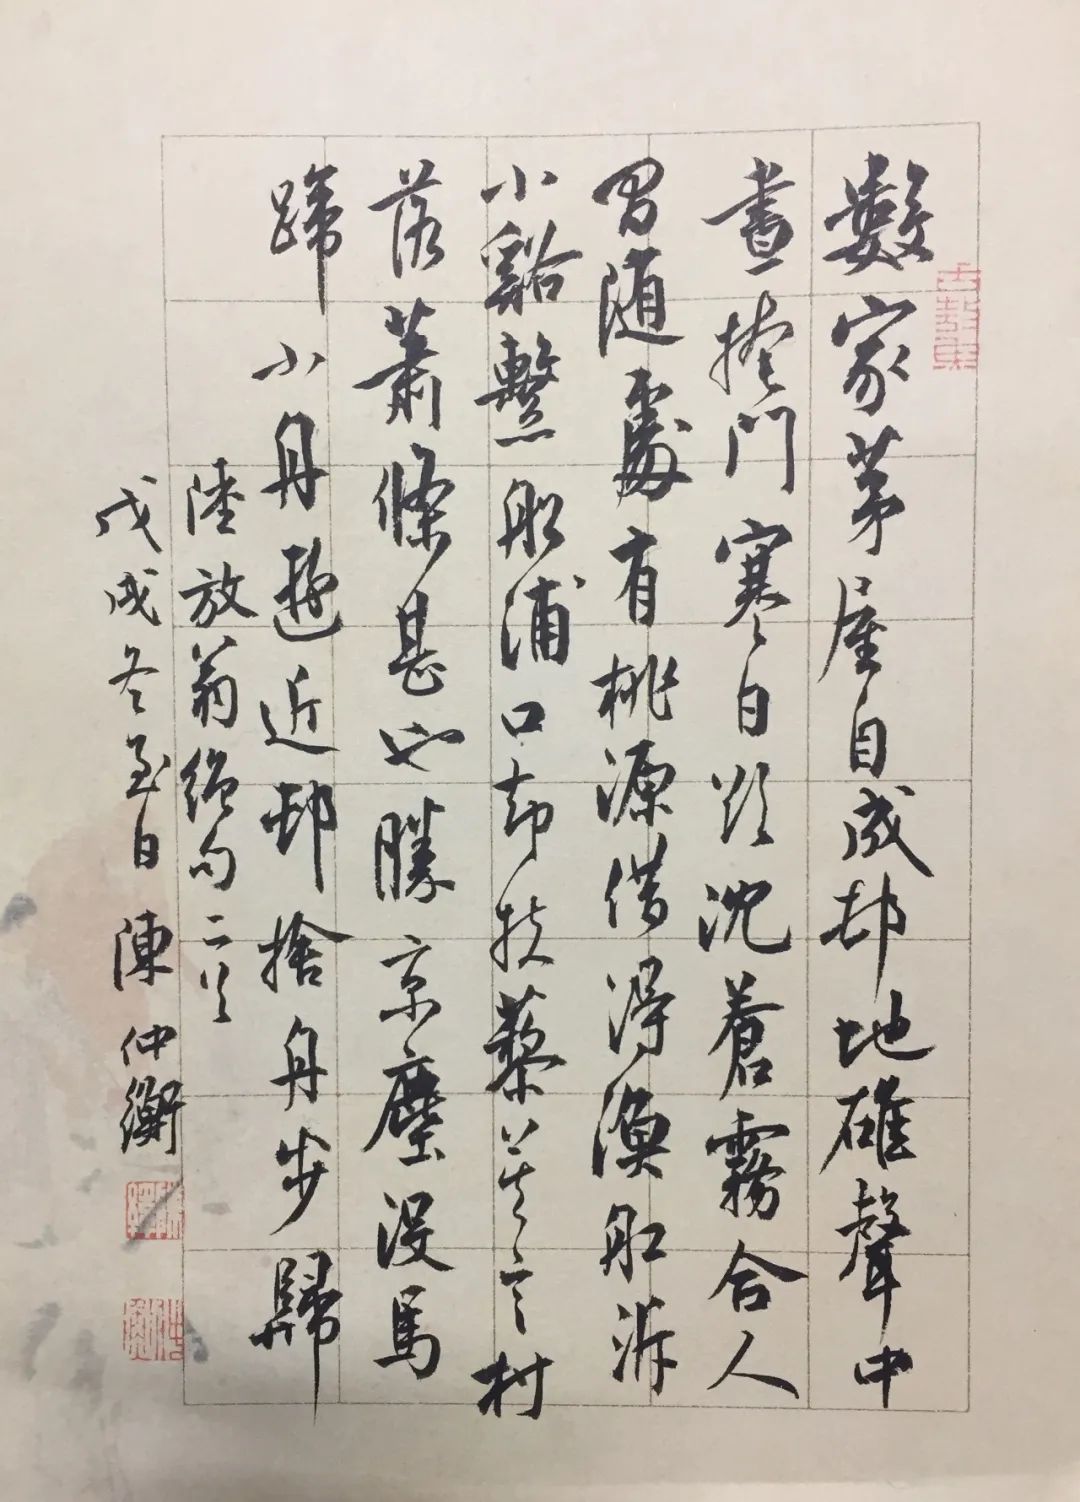 數家茅屋自成邨地碓聲中
晝掩門寒日欲沈蒼霧合人
間随處有桃源借得漁舡泝
小谿繫船浦口却扶藜莫言村
落蕭條甚也勝京塵沒馬
蹄 小舟遊近邨捨舟步歸
陸放翁絕句二首
戊戌冬至日陳仲衡